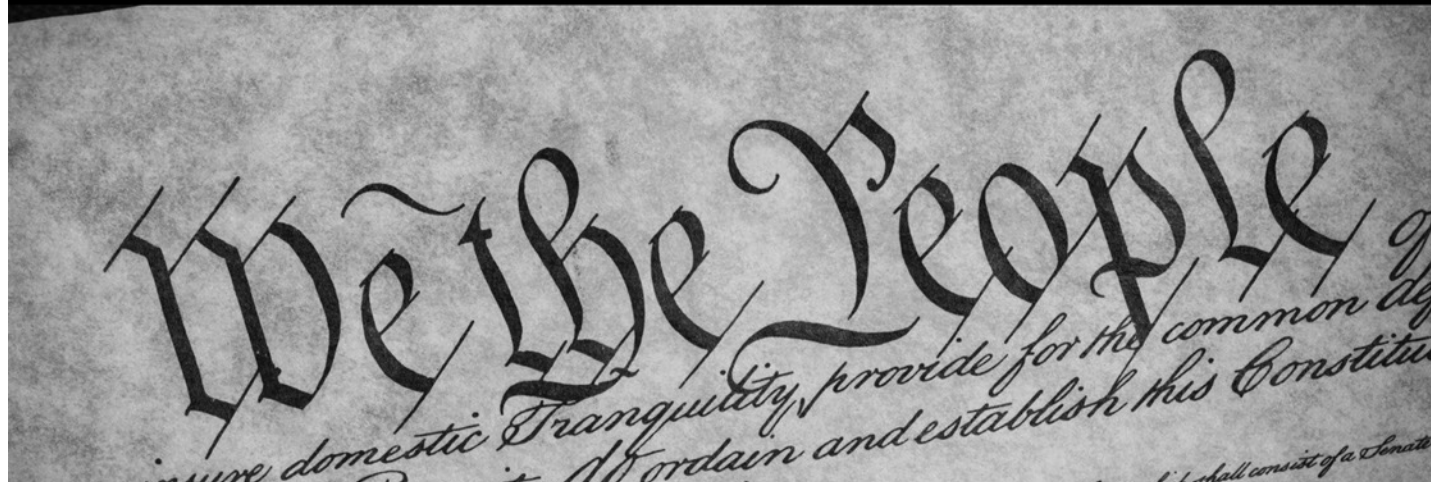 We the People of
insure domestic Tranquility, provide for the common def
do ordain and establish this Constitu
shall consist of a Senate